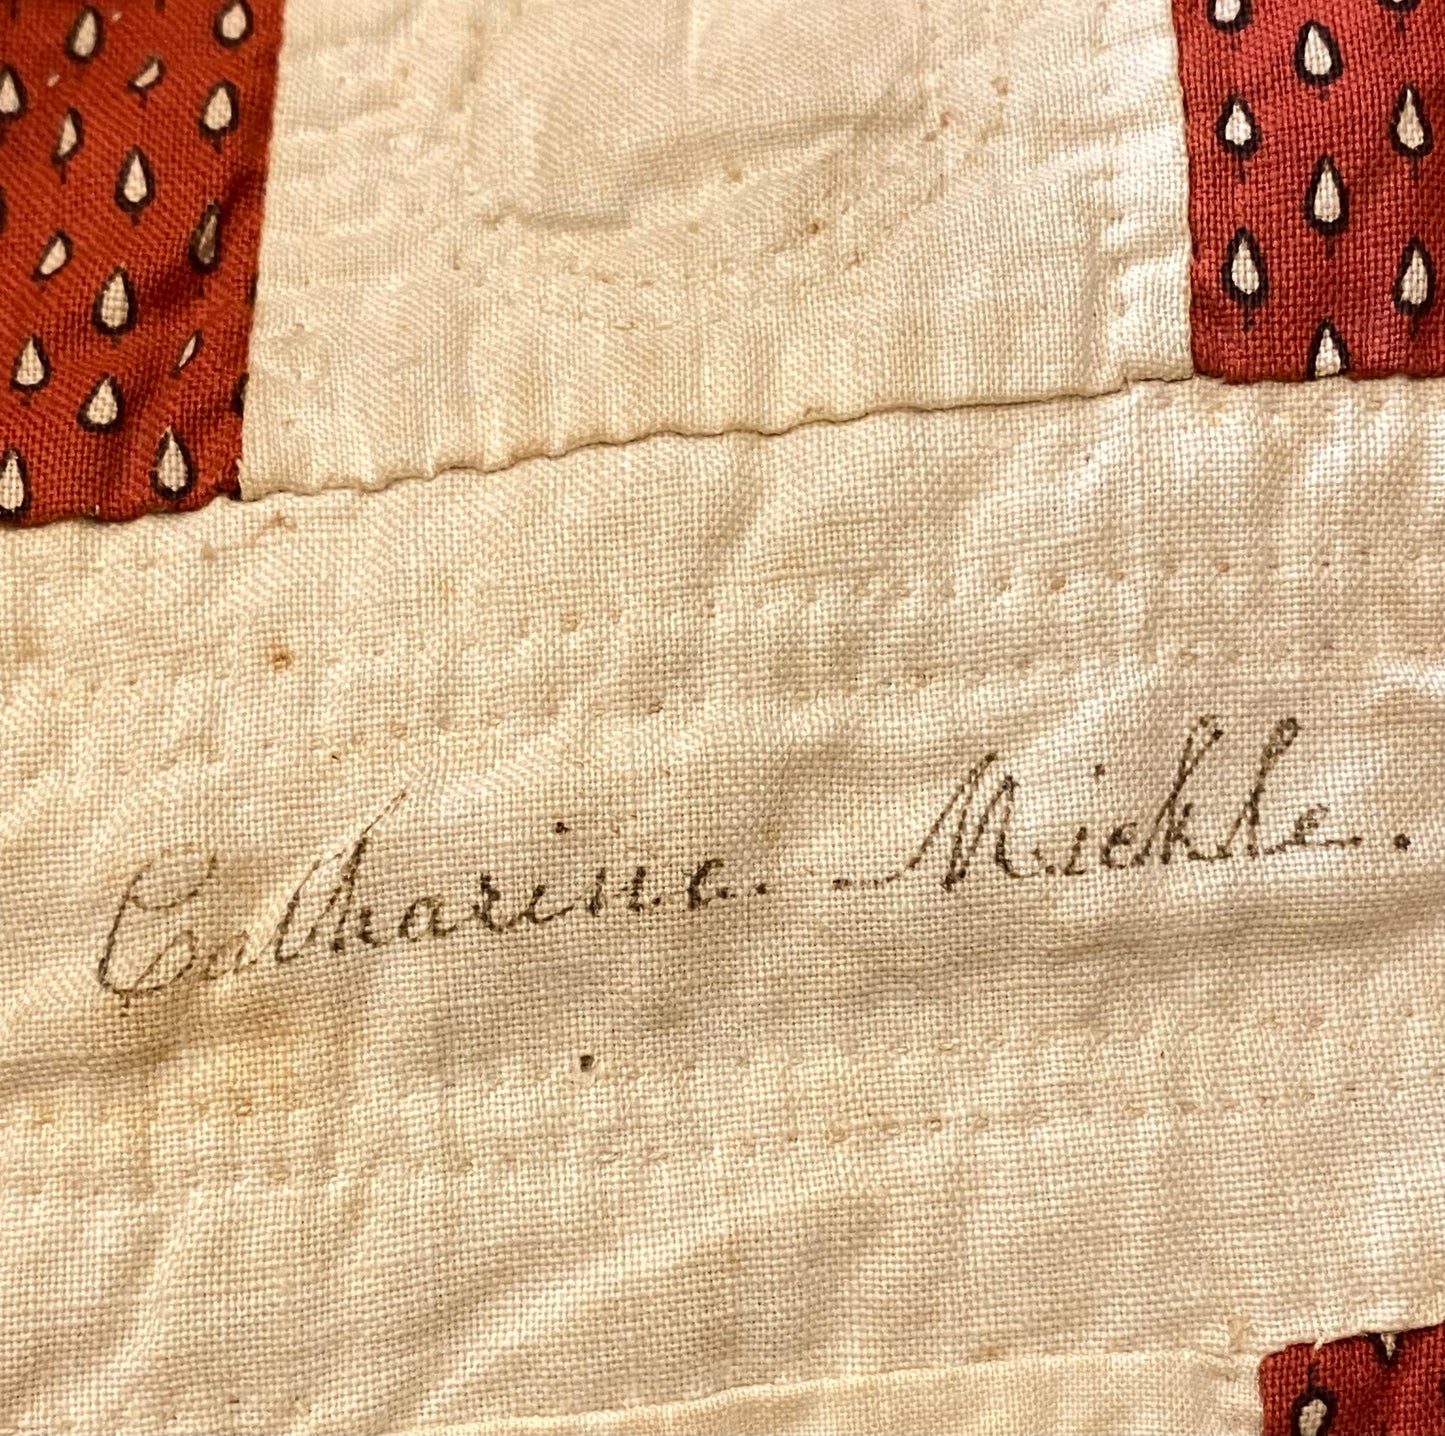 Catharina. Mickle.